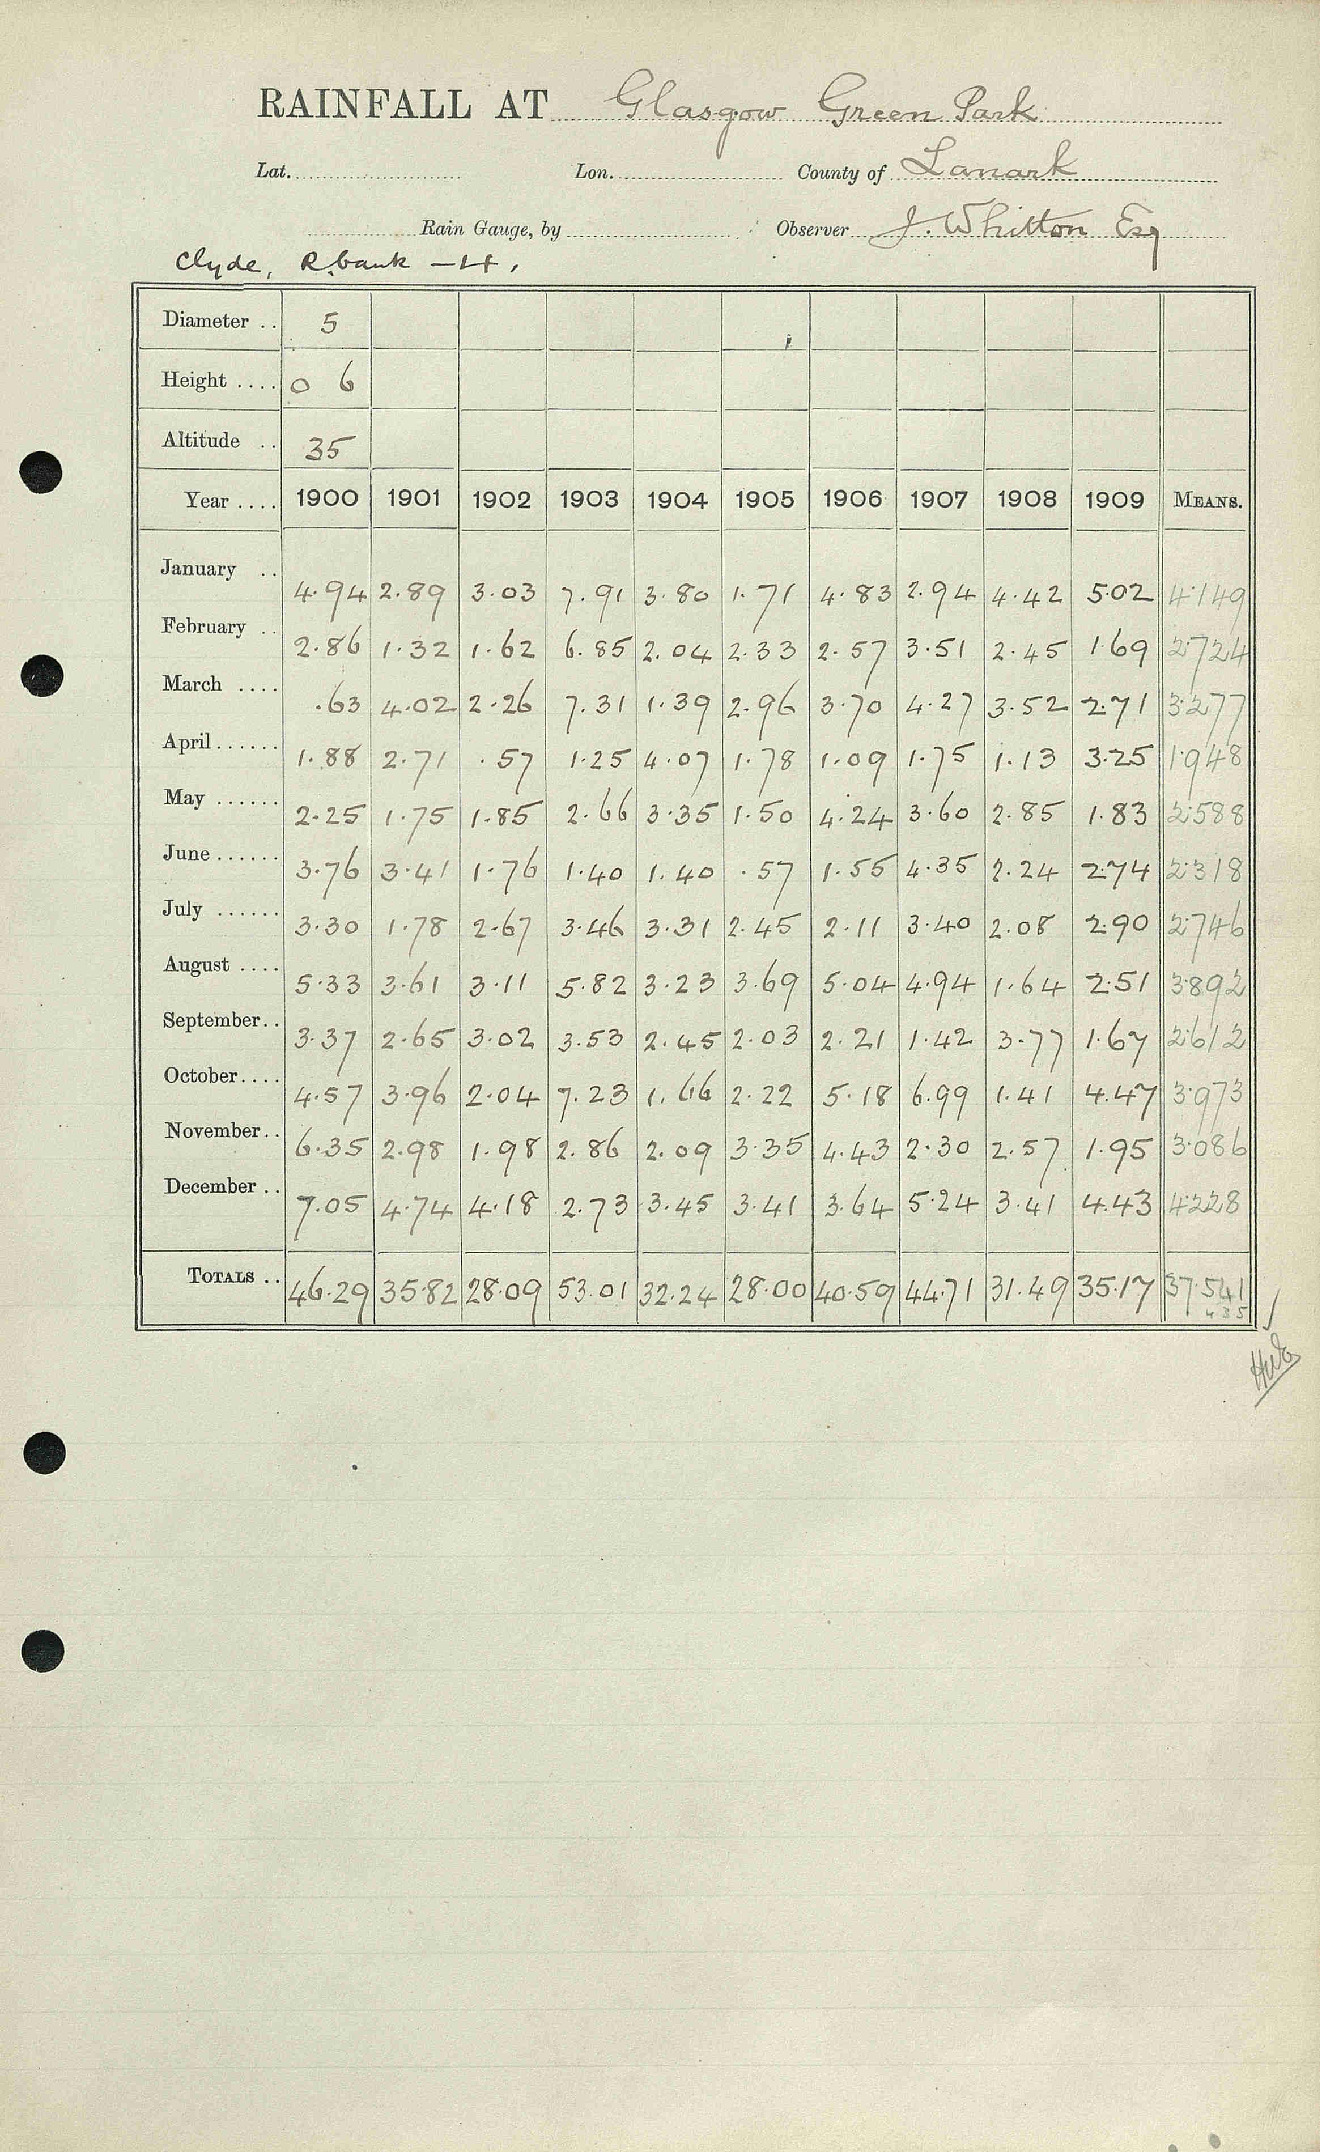 RAINFALL AT Glasgow Green Park
Lat. Lon. County of Lanark
Rain Gauge, by Observer J. Whitton Esq
Clyde, R. bank – H.
Diameter .. 5
Height .... 0 6
Altitude .. 35
Year .... 1900 1901 1902 1903 1904 1905 1906 1907 1908 1909 MEANS.
January .. 4.94 2.89 3.03 7.91 3.80 1.71 4.83 2.94 4.42 5.02 4.149
February .. 2.86 1.32 1.62 6.85 2.04 2.33 2.57 3.51 2.45 1.69 2.724
March .... .63 4.02 2.26 7.31 1.39 2.96 3.70 4.27 3.52 2.71 3.277
April ...... 1.88 2.71 .57 1.25 4.07 1.78 1.09 1.75 1.13 3.25 1.948
May ...... 2.25 1.75 1.85 2.66 3.35 1.50 4.24 3.60 2.85 1.83 2.588
June ...... 3.76 3.41 1.76 1.40 1.40 .57 1.55 4.35 2.24 2.74 2.318
July ...... 3.30 1.78 2.67 3.46 3.31 2.45 2.11 3.40 2.08 2.90 2.746
August .... 5.33 3.61 3.11 5.82 3.23 3.69 5.04 4.94 1.64 2.51 3.892
September .. 3.37 2.65 3.02 3.53 2.45 2.03 2.21 1.42 3.77 1.67 2.612
October .... 4.57 3.96 2.04 7.23 1.66 2.22 5.18 6.99 1.41 4.47 3.973
November .. 6.35 2.98 1.98 2.86 2.09 3.35 4.43 2.30 2.57 1.95 3.086
December .. 7.05 4.74 4.18 2.73 3.45 3.41 3.64 5.24 3.41 4.43 4.228
TOTALS .. 46.29 35.82 28.09 53.01 32.24 28.00 40.59 44.71 31.49 35.17 37.541
435